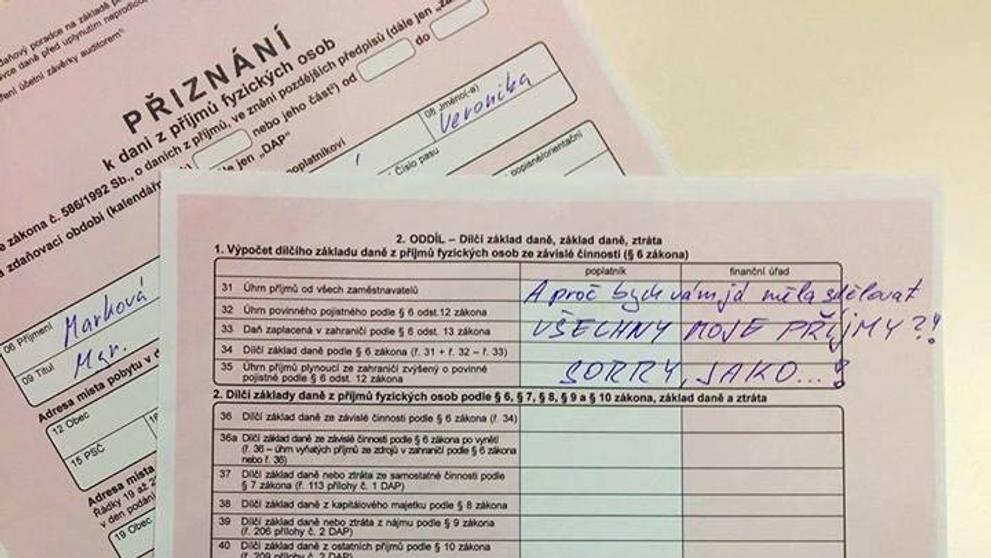 daňový poradce na základě
PŘIZNÁNÍ
k dani z příjmů fyzických osob
zákona č. 586/1992 Sb., o daních z příjmů, ve znění pozdějších předpisů (dále jen
zdaňovací období (kalendářní nebo jeho část²) od do
dále jen „DAP"
poplatníkovi
06 Příjmení Marková
08 Jméno(-a) Veronika
09 Titul Mgr.
Číslo pasu
popisné/orientační
Adresa místa pobytu v
12 Obec
15 PSČ
Adresa místa
Řádky 19 až
v den podání
19 Obec
2. ODDÍL – Dílčí základ daně, základ daně, ztráta
1. Výpočet dílčího základu daně z příjmů fyzických osob ze závislé činnosti (§ 6 zákona)
poplatník finanční úřad
31 Úhrn příjmů od všech zaměstnavatelů A proč bych vám já měla sdělovat
32 Úhrn povinného pojistného podle § 6 odst.12 zákona
33 Daň zaplacená v zahraničí podle § 6 odst. 13 zákona VŠECHNY MOJE PŘÍJMY?!
34 Dílčí základ daně podle § 6 zákona (ř. 31 + ř. 32 – ř. 33)
35 Úhrn příjmů plynoucí ze zahraničí zvýšený o povinné
pojistné podle § 6 odst. 12 zákona SORRY, JAKO...
2. Dílčí základy daně z příjmů fyzických osob podle § 6, § 7, § 8, § 9 a § 10 zákona, základ daně a ztráta
36 Dílčí základ daně ze závislé činnosti podle § 6 zákona (ř. 34)
36a Dílčí základ daně ze závislé činnosti podle § 6 zákona po vynětí
(ř. 36 – úhrn vyňatých příjmů ze zdrojů v zahraničí podle § 6 zákona
nebo ř. 36)
37 Dílčí základ daně nebo ztráta ze samostatné činnosti podle
§ 7 zákona (ř. 113 přílohy č. 1 DAP)
38 Dílčí základ daně z kapitálového majetku podle § 8 zákona
39 Dílčí základ daně nebo ztráta z nájmu podle § 9 zákona
(ř. 206 přílohy č. 2 DAP)
40 Dílčí základ daně z ostatních příjmů podle § 10 zákona
(ř. 209 přílohy č. 2 DAP)